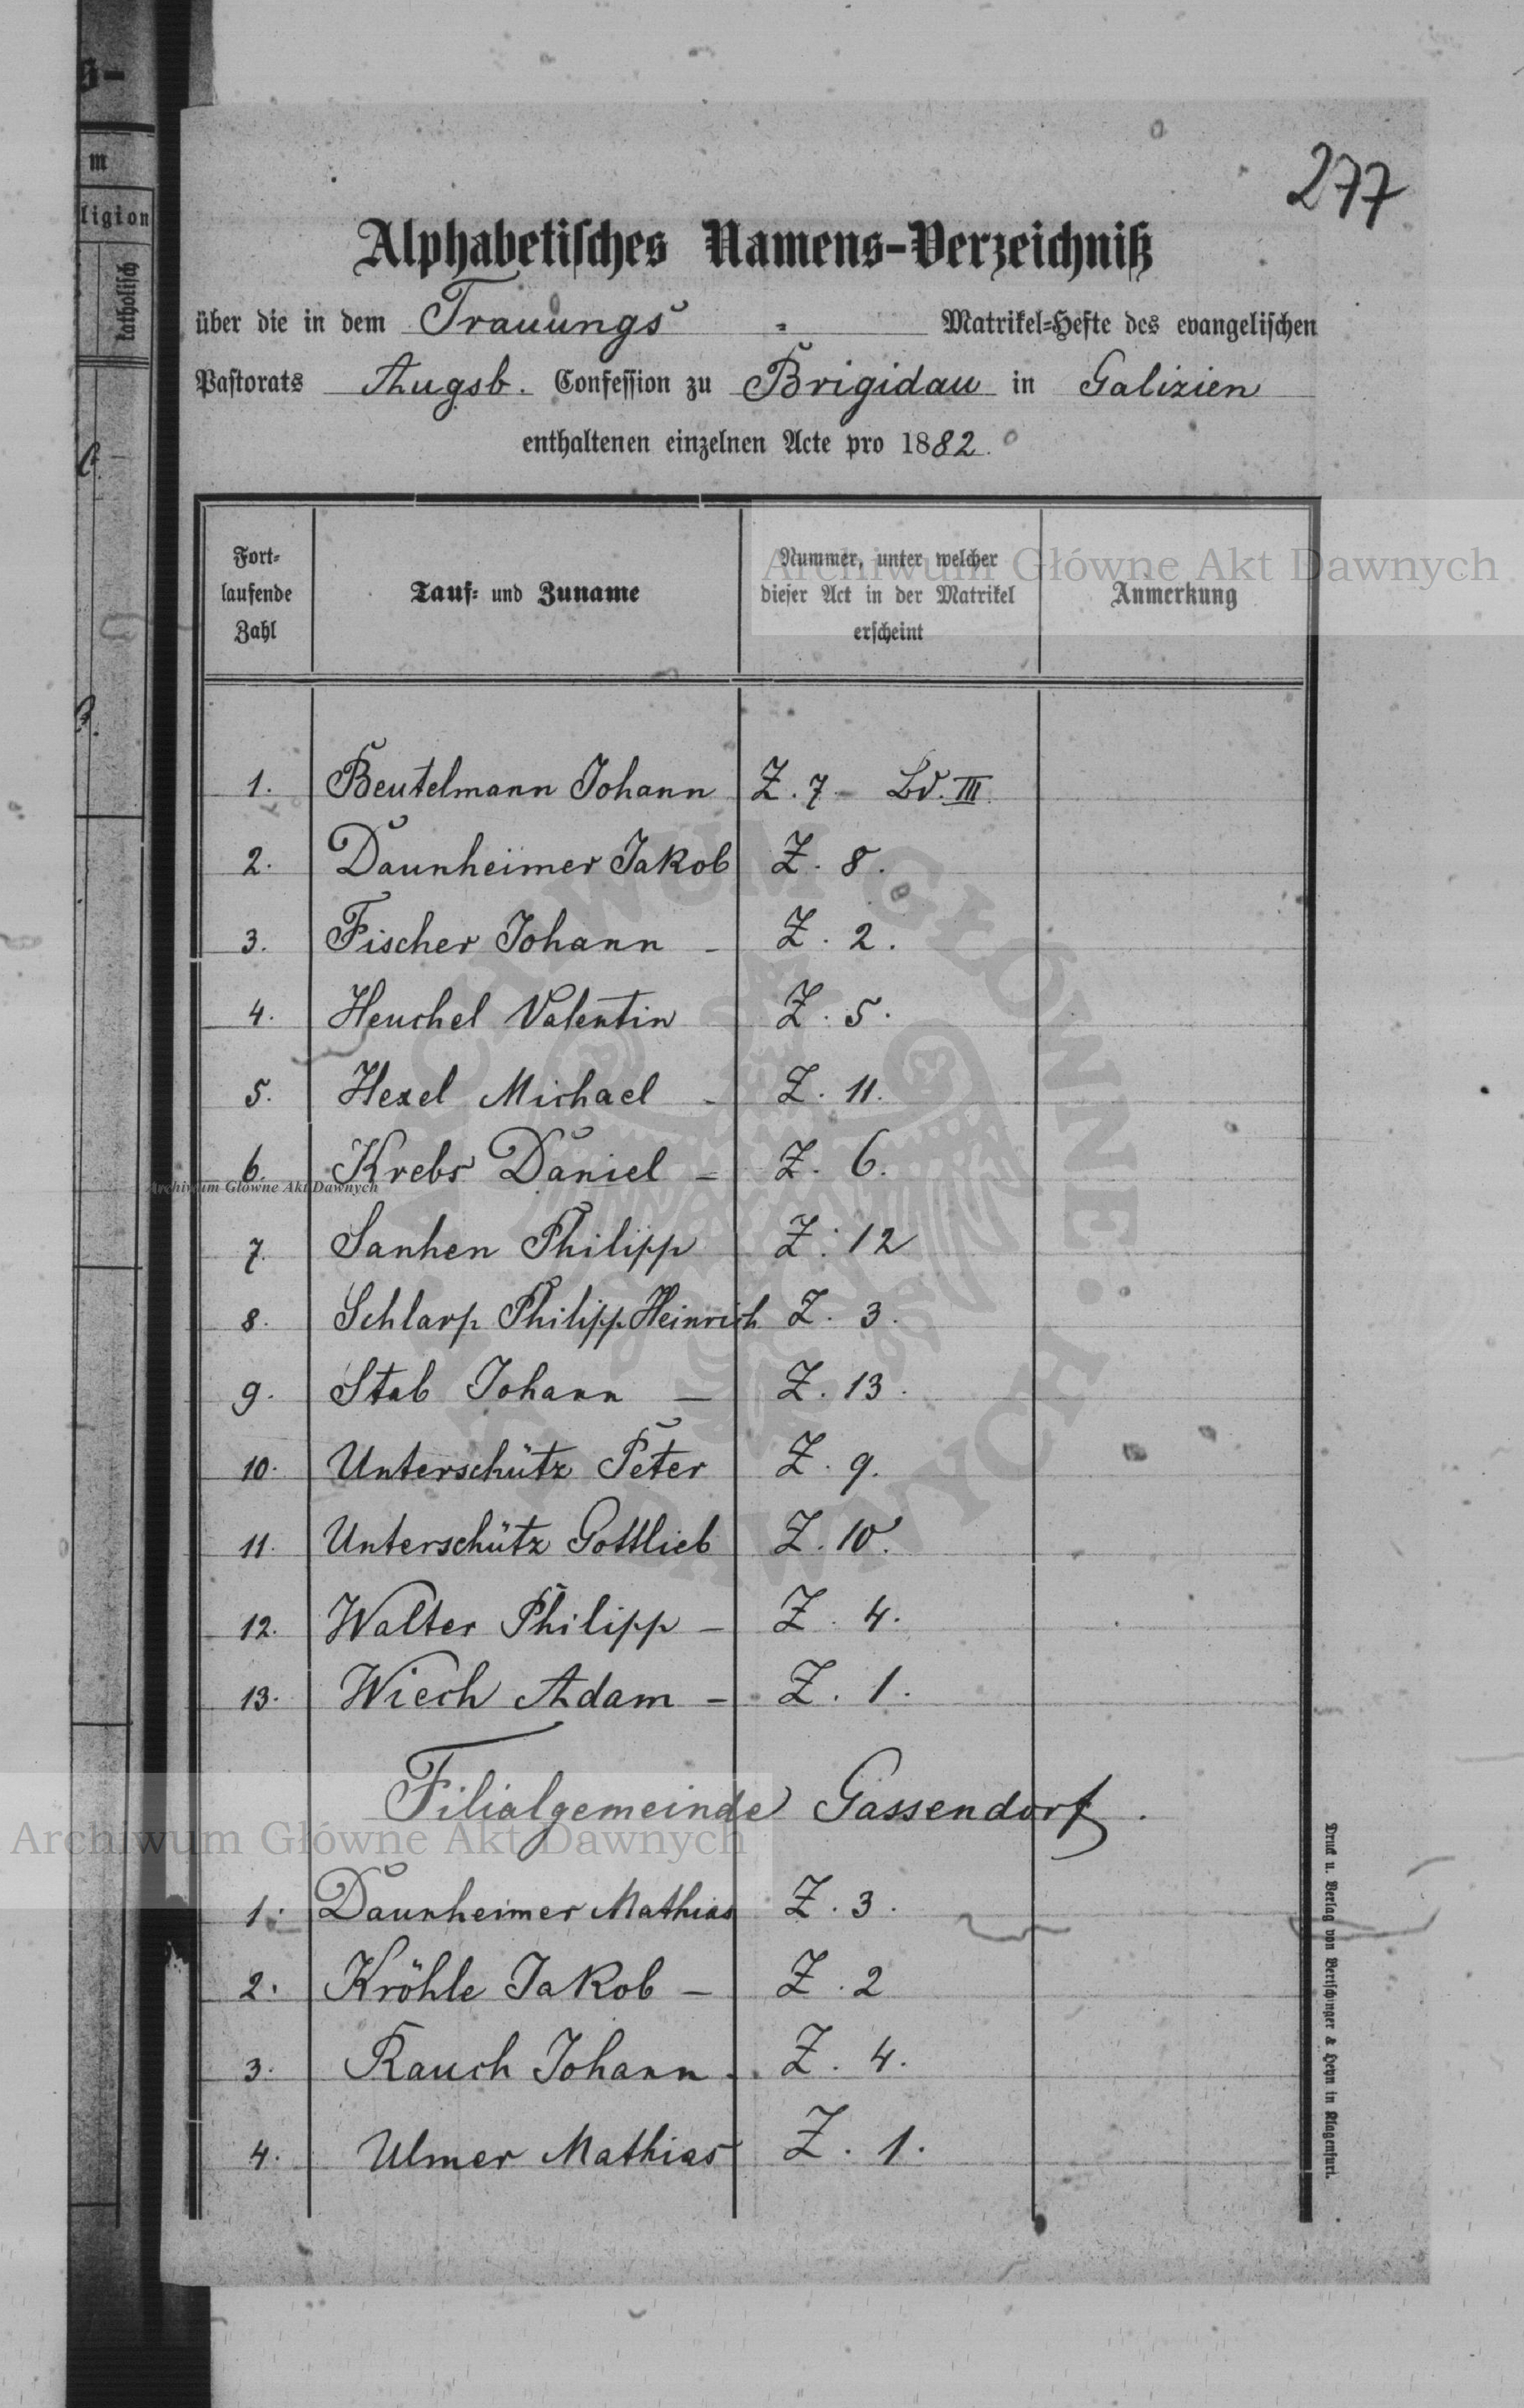 277
Alphabetisches Namens-Verzeichniß
über die in dem Trauungs - Matrikel-Hefte des evangelischen
Pastorats Augsb. Confession zu Brigidau in Galizien
enthaltenen einzelnen Acte pro 1882.
Fort-laufende Zahl | Tauf- und Zuname | Nummer, unter welcher dieser Act in der Matrikel erscheint | Anmerkung
1. Beutelmann Johann Z. 7 - Bd. III.
2. Daunheimer Jakob Z. 8.
3. Fischer Johann - Z. 2.
4. Heuchel Valentin Z. 5.
5. Hexel Michael - Z. 11.
6. Krebs Daniel - Z. 6.
7. Sanhen Philipp Z. 12
8. Schlarp Philipp Heinrich Z. 3.
9. Stab Johann - Z. 13.
10. Unterschütz Peter Z. 9.
11. Unterschütz Gottlieb Z. 10.
12. Walter Philipp - Z. 4.
13. Wiech Adam - Z. 1.
Filialgemeinde Gassendorf.
1. Daunheimer Mathias Z. 3.
2. Kröhle Jakob - Z. 2
3. Rauch Johann - Z. 4.
4. Ulmer Mathias Z. 1.
Druck u. Verlag von Bertschinger & Heyn in Klagenfurt.
m
ligion
katholisch
Archiwum Główne Akt Dawnych
Archiwum Główne Akt Dawnych
Archiwum Główne Akt Dawnych
ARCHIWUM GŁÓWNE AKT DAWNYCH